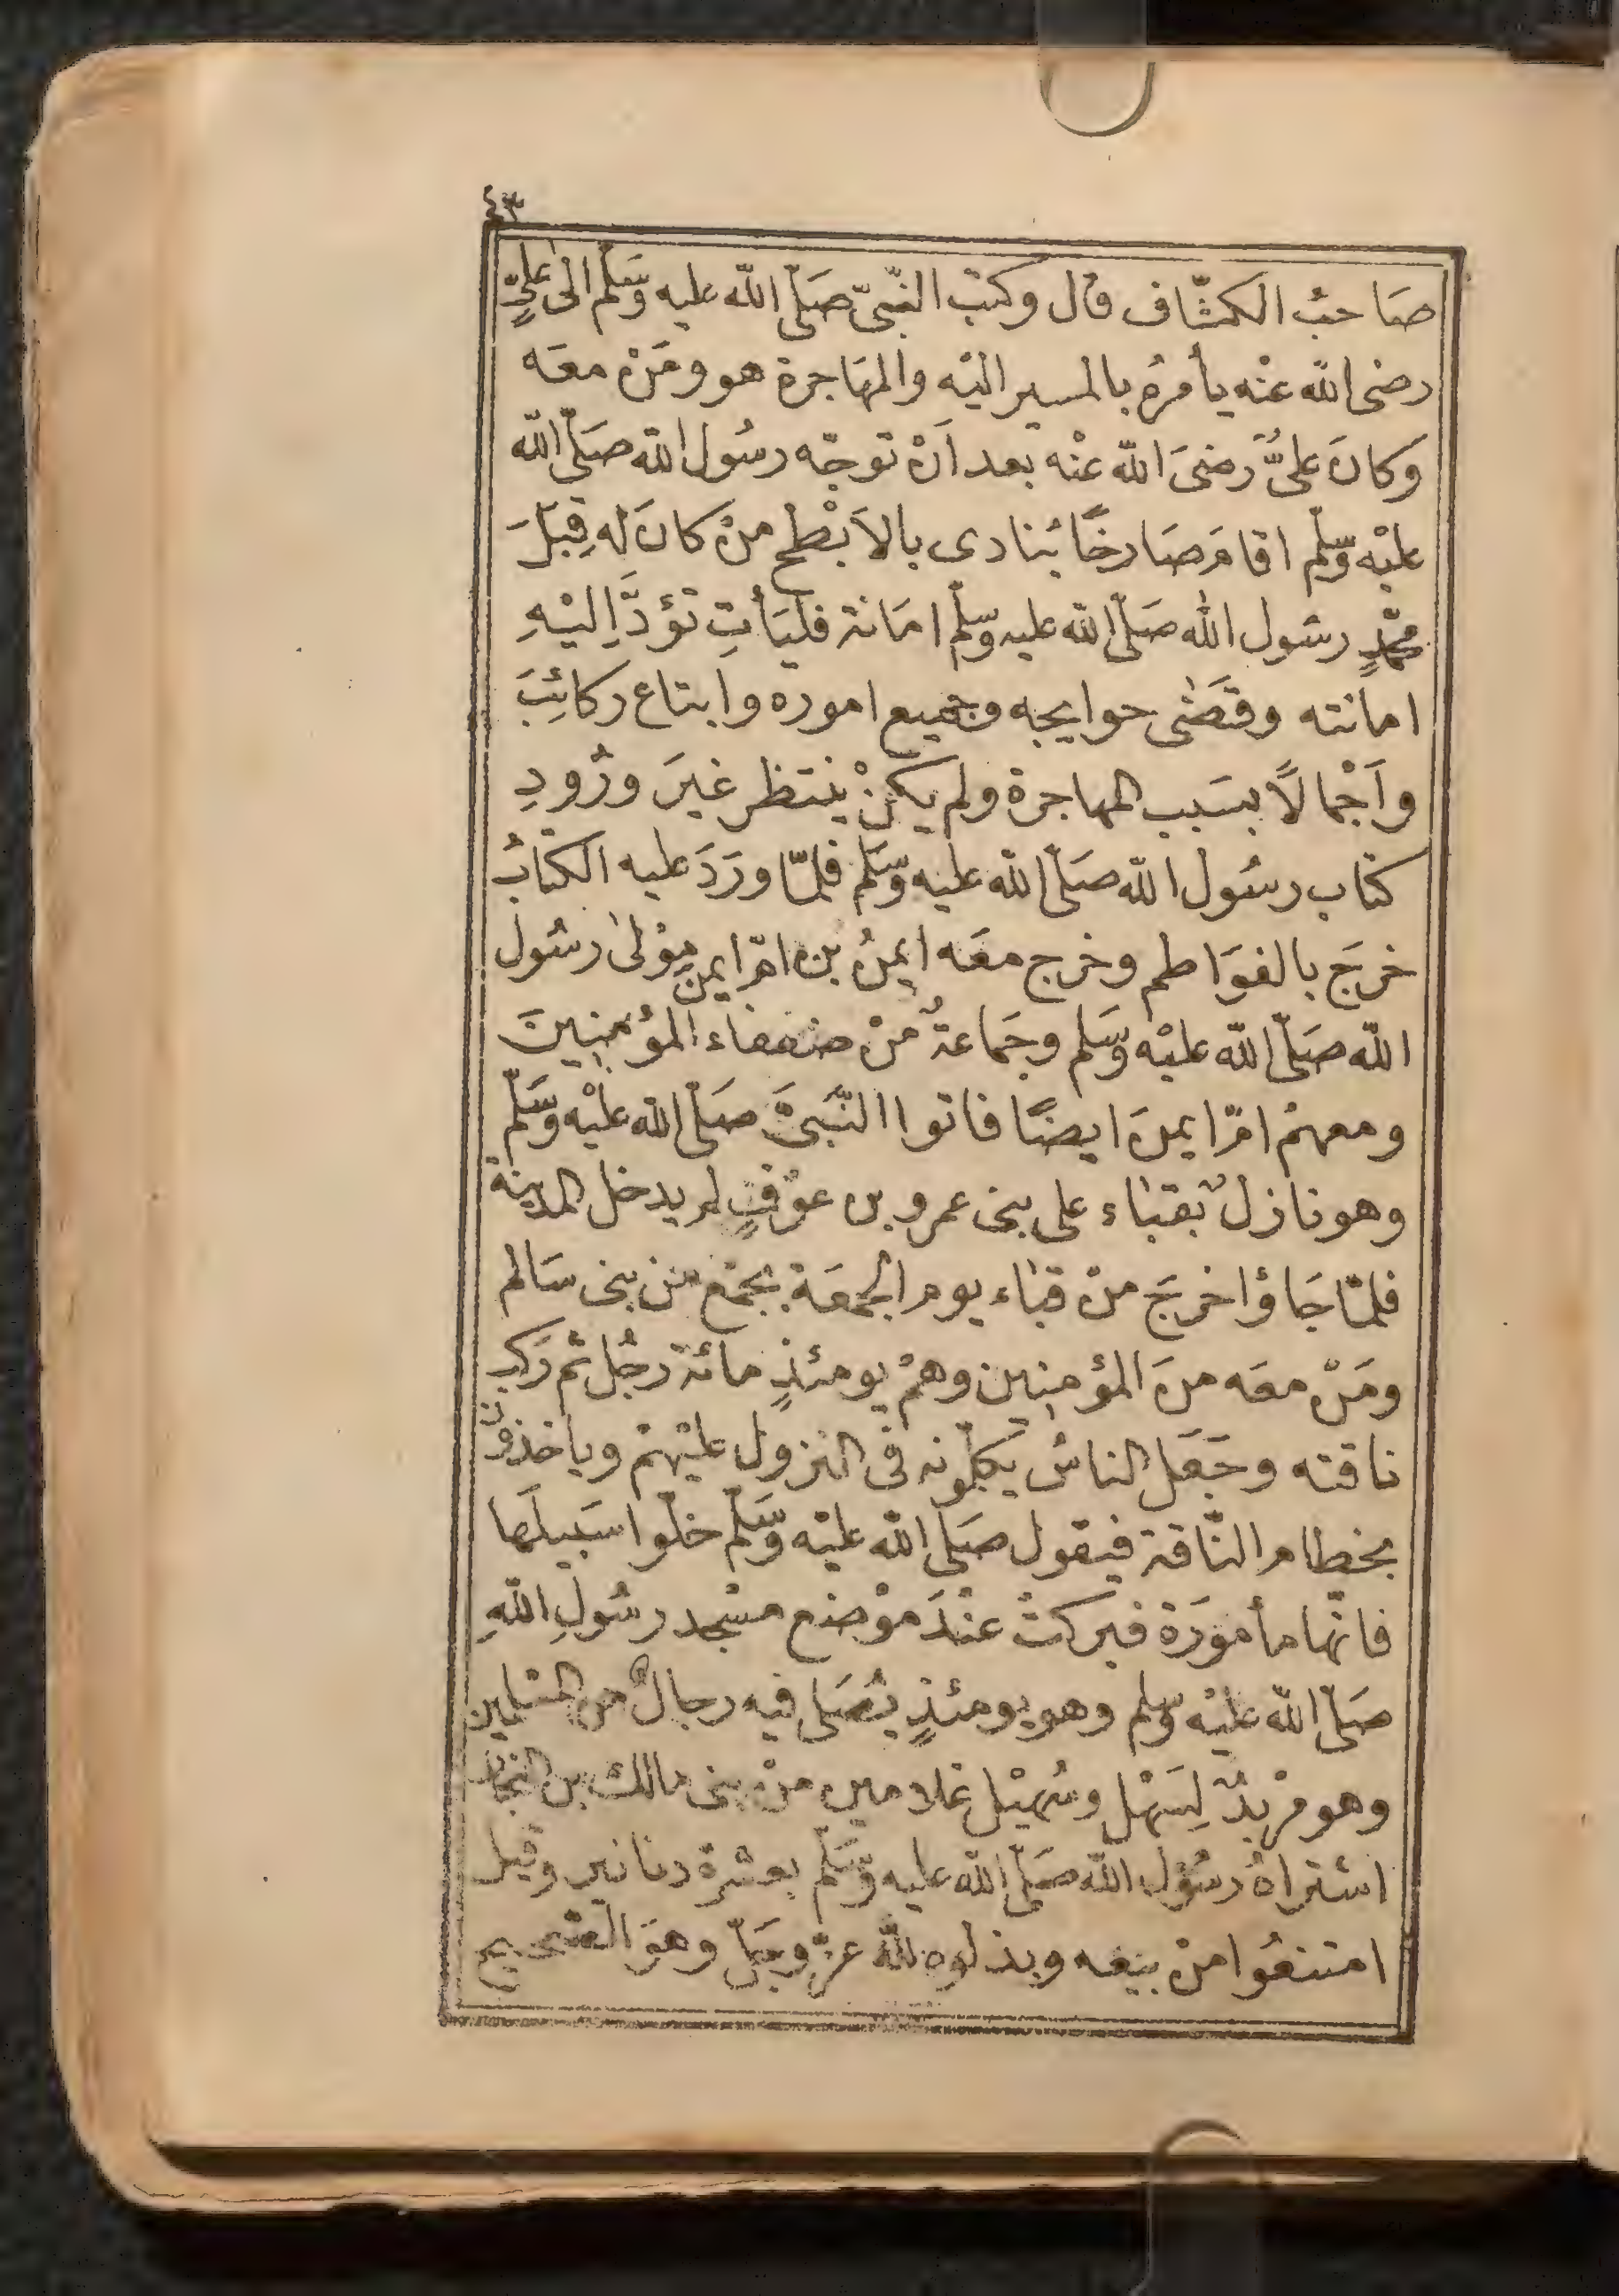 ٤٣
صَاحبُ الكشّاف قال وكتبَ النّبىّ صَلّى اللّه عليه وَسَلّم الىٰ عَلىٍّ
رضى اللّه عنْه يأمرُه بالمسير اليْه والمهَاجرة هو ومَنْ معَه
وَكانَ علىٌّ رَضىَ اللّه عنْه بعد اَنْ توجّه رسُول اللّه صَلّى اللّه
عليْه وسّلم اقامَ صَارخًا يُنادى بالاَبْطح منْ كانَ لهُ قِبَلَ
محمّدٍ رسُول اللّٰه صَلّى اللّه عليه وسّلم امَانة فليَأتِ تؤدَّ اِليْهِ
امانته وقَضٰى حوايجه وجَميع اموره وابتاع ركائِبَ
واَجْمالًا بسَبب المهاجرة ولم يكنْ ينتظر غيرَ ورُودِ
كتاب رسُول اللّه صَلّى اللّه عليه وسَّلم فلمّا ورَدَ عليه الكتابُ
خرجَ بالفوَاطم وخرج معَه ايمنُ بن امّ ايمن موْلىٰ رسُول
اللّه صَلّى اللّه عليْه وَسَلم وجَماعةٌ منْ ضعفاء المؤمنينَ
ومعهمْ امّ ايمنَ ايضًا فاتوا النّبَىَّ صَلّى اللّه عليْه وَسَلّم
وهو نازلٌ بقبٰاء على بنى عمرو بن عوْفٍ لم يدخل المدينة
فلمّا جَاؤا خرجَ منْ قبٰاء يوم الجمعَة بجمْع من بنى سَالم
ومَنْ معَه منَ المؤمنين وهمْ يومئذٍ مائة رجُل ثم رَكبَ
ناقته وجَعَل الناسُ يُكلّمونه فى النزول عليْهمْ وياخذون
بخطام النّاقة فيقول صَلى اللّه عليْه وَسَلّم خلّوا سَبيلَها
فانّها مأمورَة فبركتْ عنْدَ موْضع مسْجد رسُولِ اللّهِ
صَلّى اللّه عليْه وسلم وهو يومئذٍ يُصَلى فيه رجالٌ من المسْلمين
وهو مرْبدٌ لِسَهْل وسُهيْل غلامين منْ بنى مالك بن النجّار
اشتراهُ رسُول اللّه صَلّى اللّه عليه وَسَلّم بعشرة دنانير وقيل
امتنعُوا منْ بيْعه وبذلوه للّه عزّ وجَلّ وهوَ الصّحيح